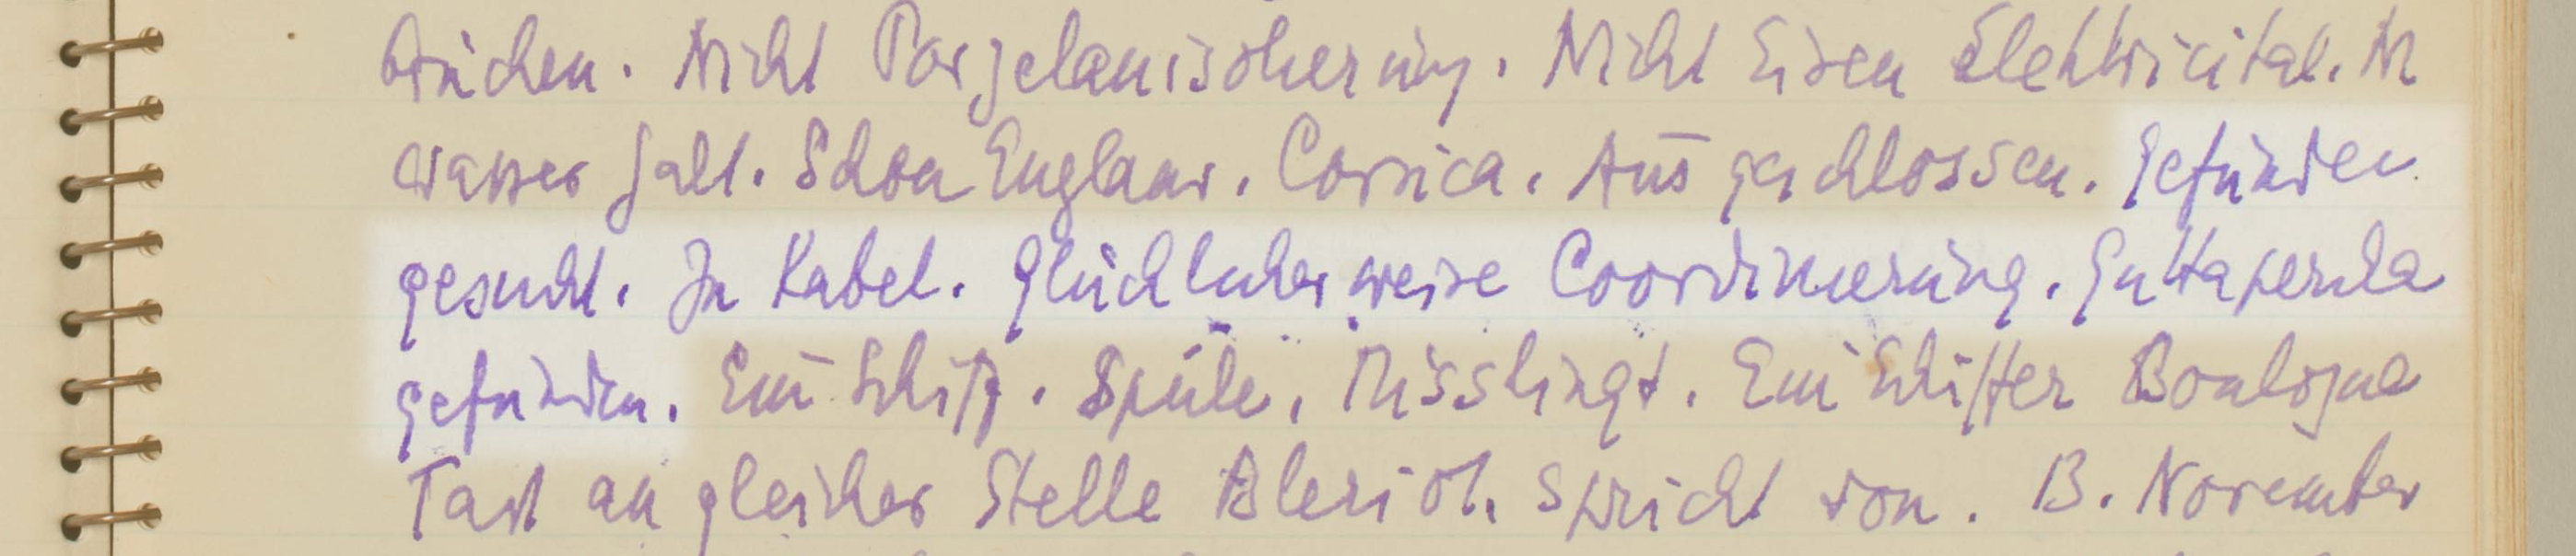 brüchen. Nicht Porzelanisolierung. Nicht Eisen Elektricität. N
wasser galt. Schon England. Corsica. Aus geschlossen. Gefunden
gesucht. In Kabel. Glücklicherweise Coordinierung. Guttapercha
gefunden. Ein Schiff. Spule. Misslingt. Ein Schiffer Boulogne
Fast an gleicher Stelle Bleriot. Spricht von. B. November